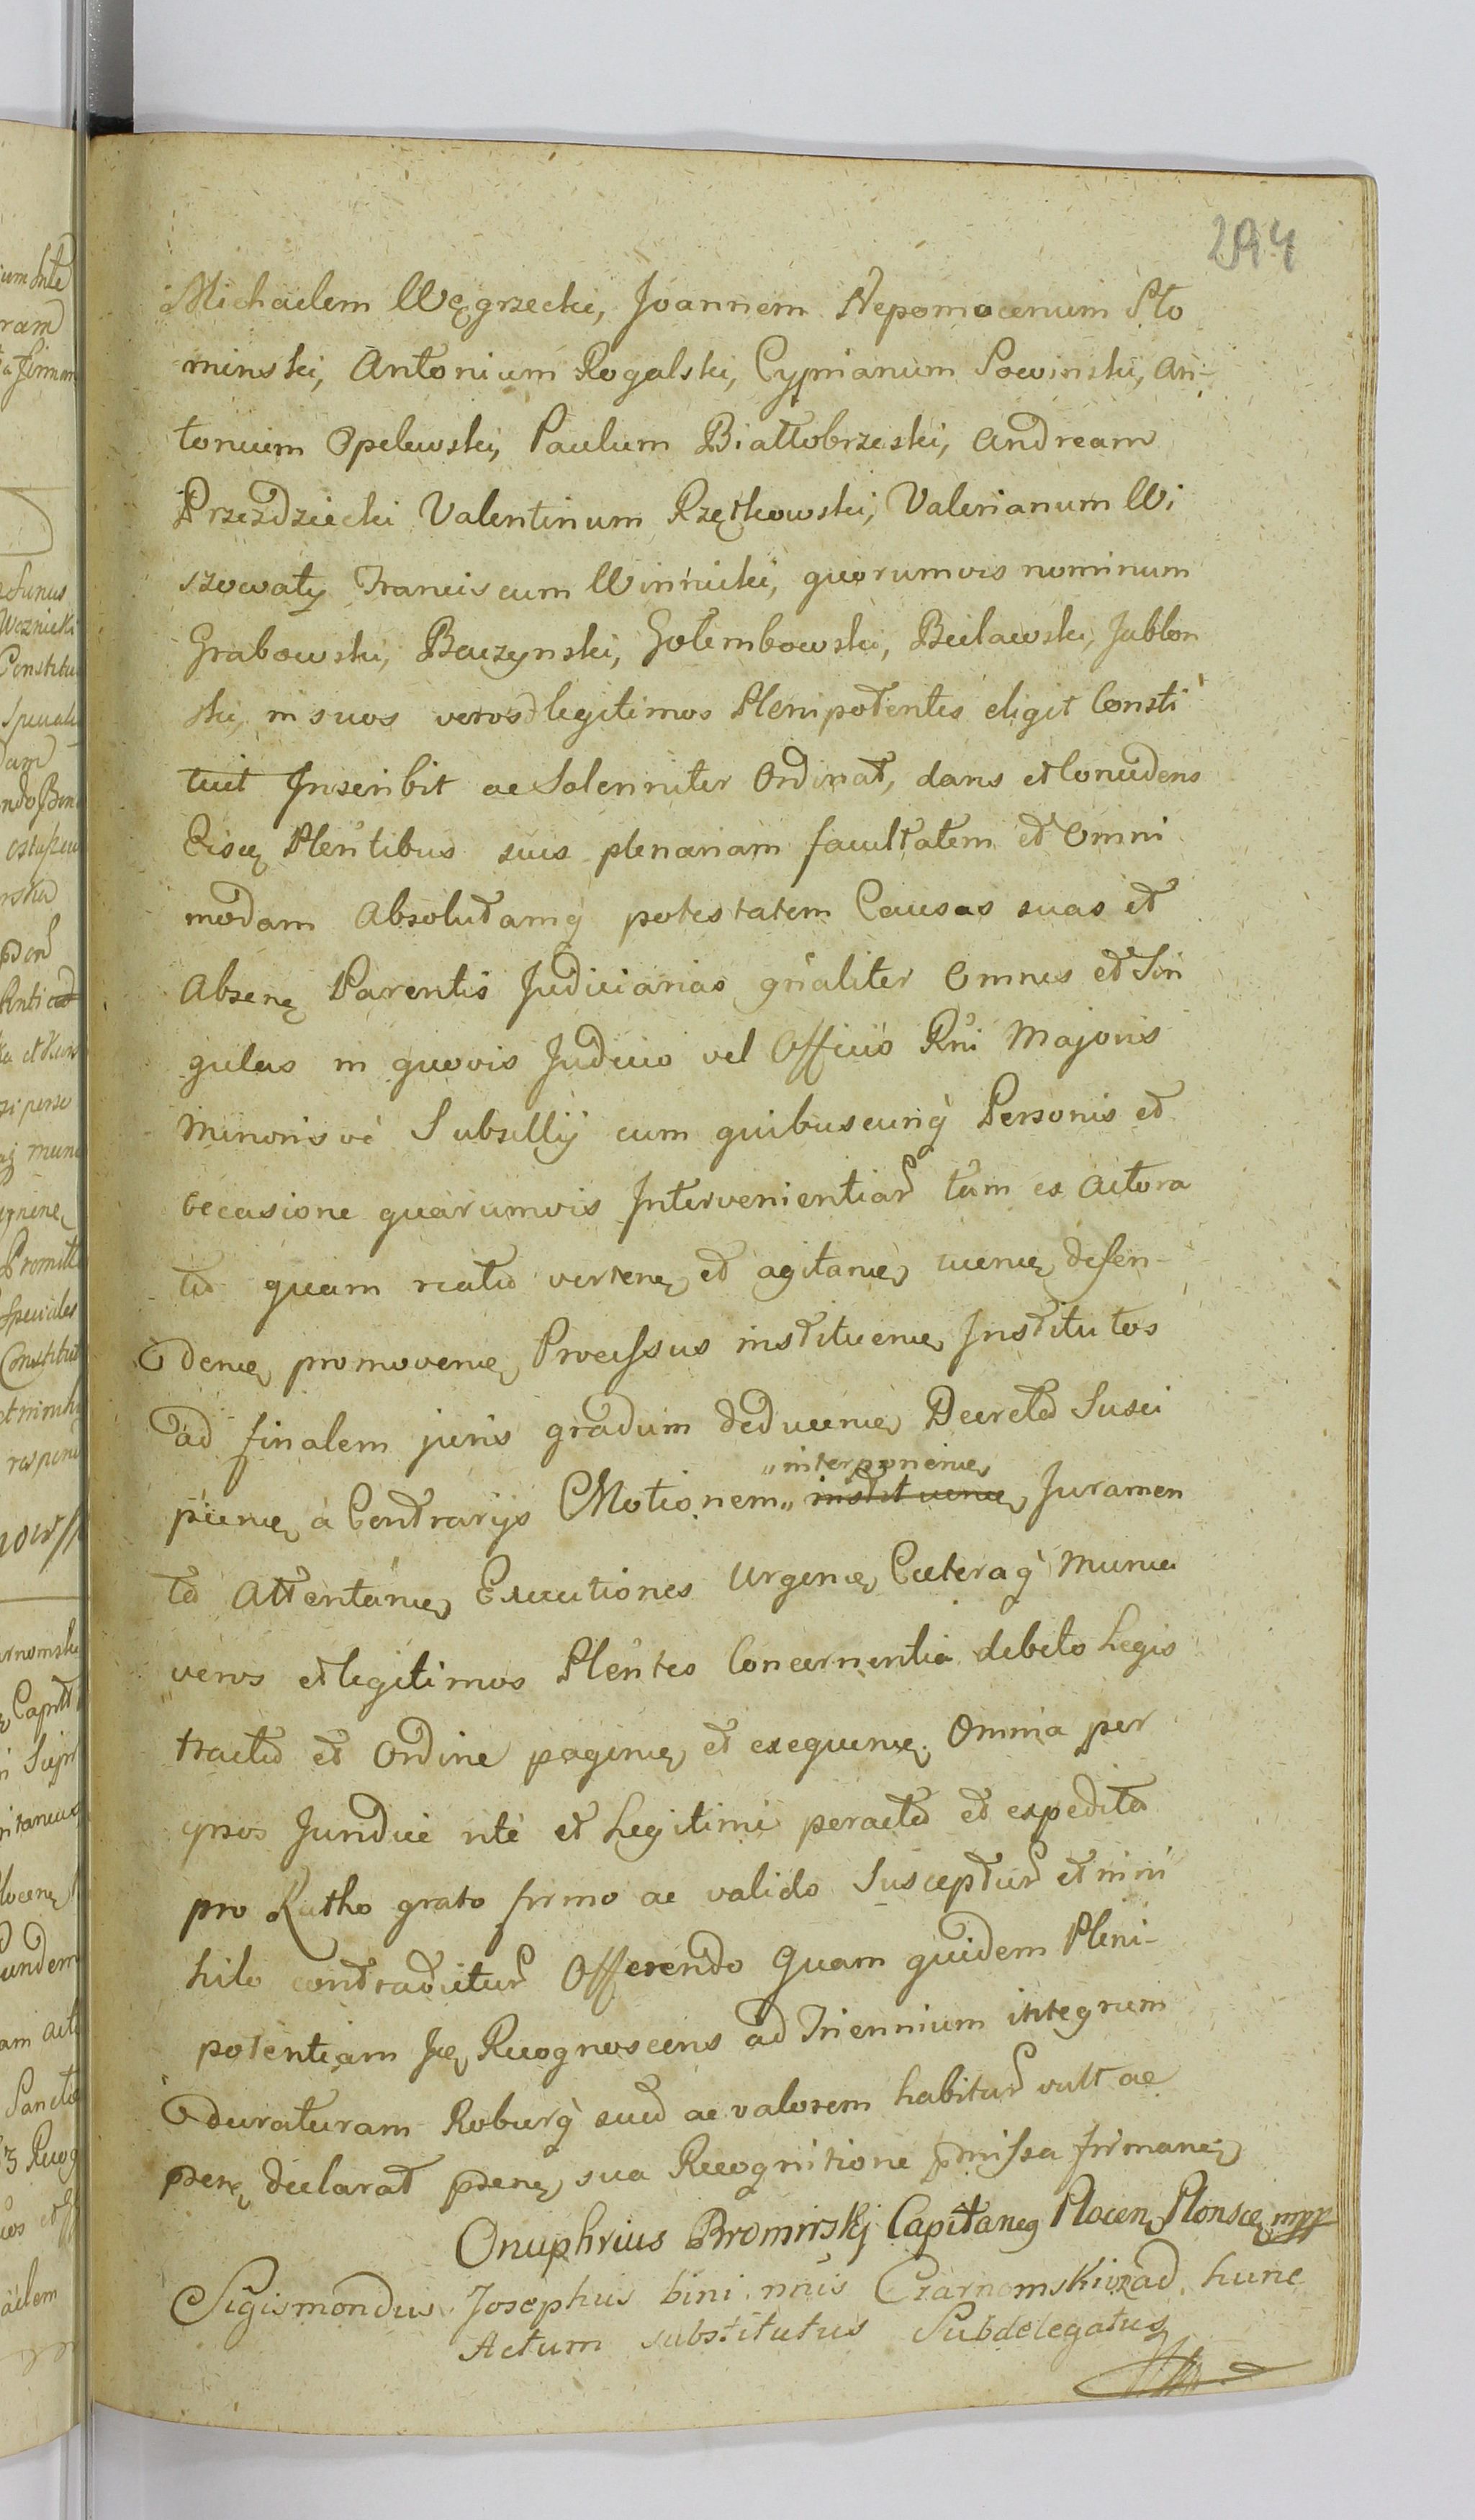 294
Michaelem Węgrzecki, Joannem Nepomocenum Sło
minski, Antonium Rogalski, Cyprianum Sowinski, An-
tonium Opelewski, Paulum Białłobrzeski, Andream
Przezdziecki Valentinum Rzętkowski, Valerianum Wi
szowaty Franciscum Winnicki, quorumvis nominum
Grabowski, Baczynski, Gołembowski, Bielawski, Jabłon
ski, in suos veros legitimos Plenipotentes eligit Consti
tuit Inscribit ac Solenniter Ordinat, dans et Concedens
Eiscę Plentibus suis plenariam facultatem et Omni
modam Absolutamq potestatem Causas suas et
Absenę Parentis Judiciarias gnaliter Omnes et Sin
gulas in quovis Judicio vel Officio Rni Majoris
Minoris vè Subsellij cum quibuscunq Personis et
occasione quarumvis Intervenientiar tam ex Actora
tu quam reatu vertenę et agitanę, tuenę defen-
denę, promovenę, Processus instituenę, Institutos
ad finalem juris gradum deducenę, Decreta Susci
pienę à Contrarijs Motionem „ instituenę, Juramen
„ interponenę
ta Attentanę, Executiones Urgenę, Caeteraq Munia
veros et legitimos Plentes Concernentia debito Legis
tractu et Ordine pagenę, et exequenę. Omnia per
ipsos Juridice ritè et Legitime peracta et expedita
pro Ratho grato firmo ac valido Suscepturῦ et in ni
hilo contradicturῦ Offerendo Quam quidem Pleni-
potentiam Ję, Recognoscens ad Triennium integrum
duraturam Roburq suῦ ac valorem habiturῦ vult ac
psenę declarat psenę, sua Recognitione pmissa frmanę
Onuphrius Bromirskj Capitaneg Plocen, Plonscę mpp
Sigismondus Josephus bini nnis Czarnomski ad hunc
Actum substitutus Subdelegatus